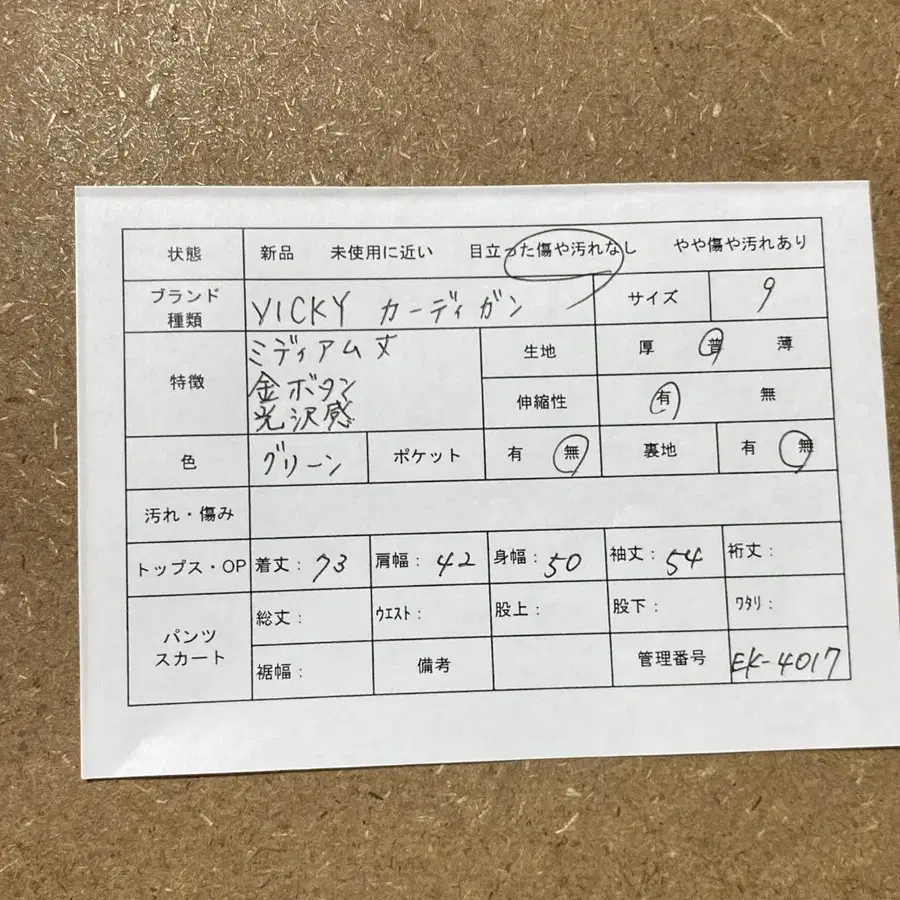 状態 新品 未使用に近い 目立った傷や汚れなし やや傷や汚れあり
ブランド種類 VICKY カーディガン サイズ 9
特徴 ミディアム丈 生地 厚 普 薄
金ボタン
光沢感 伸縮性 有 無
色 グリーン ポケット 有 無 裏地 有 無
汚れ・傷み
トップス・OP 着丈: 73 肩幅: 42 身幅: 50 袖丈: 54 裄丈:
パンツ スカート 総丈: ウエスト: 股上: 股下: ワタリ:
裾幅: 備考 管理番号 EK-4017